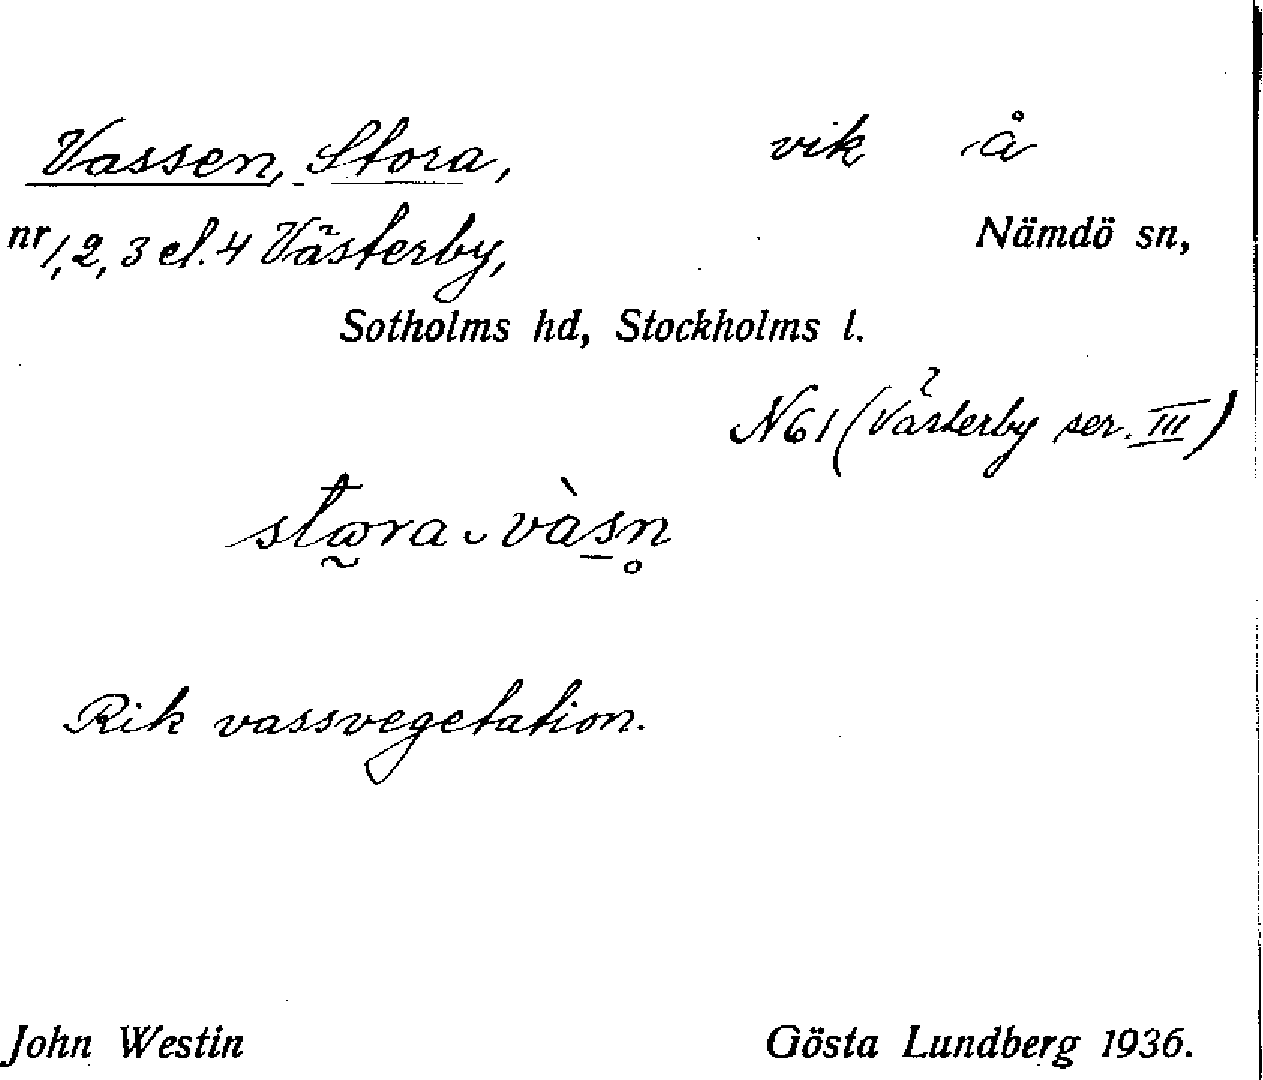 Vassen, Stora, vik å
nr 1, 2, 3 el. 4 Västerby, Nämdö sn,
Sotholms hd, Stockholms l.
N61 (Västerby ser. III)
stɷra ᴗ vàsn̥
Rik vassvegetation.
John Westin Gösta Lundberg 1936.